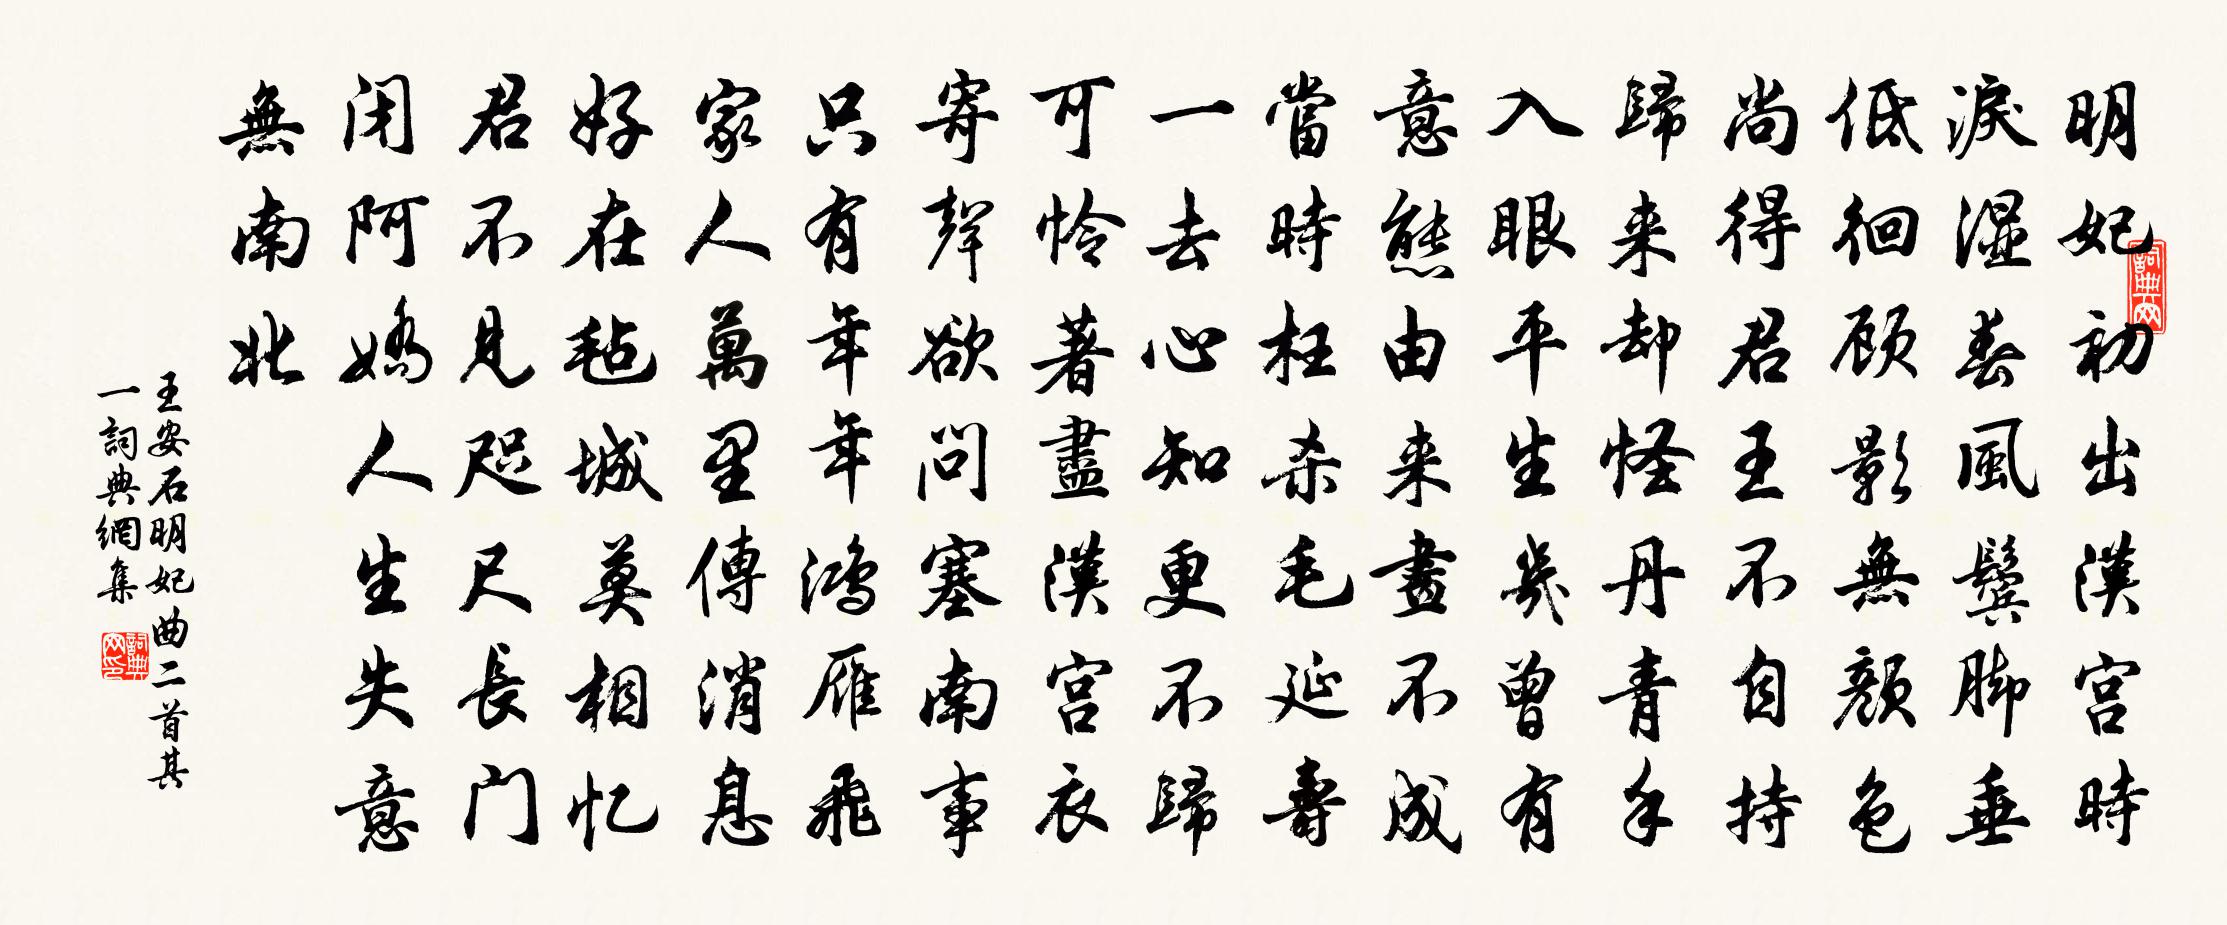 明妃初出漢宮時
淚濕春風鬢脚垂
低徊顾影無顏色
尚得君王不自持
歸来却怪丹青手
入眼平生幾曾有
意態由来畫不成
當時枉杀毛延壽
一去心知更不歸
可怜著盡漢宮衣
寄聲欲問塞南事
只有年年鴻雁飛
家人萬里傳消息
好在毡城莫相忆
君不見咫尺長门
闭阿嬌人生失意
無南北
王安石明妃曲二首其
一詞典網集
詞典网
詞典网印